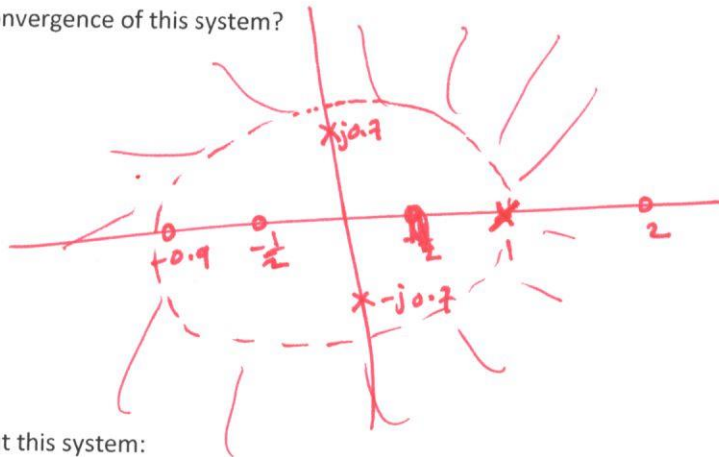 onvergence of this system?
j0.7
-0.9
-1/2
1
2
-j0.7
t this system: